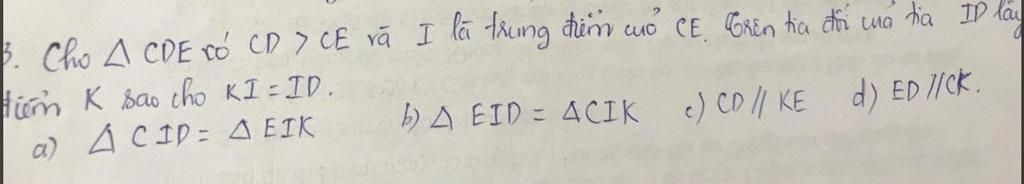 3. Cho Δ CDE có CD > CE và I là trung điểm cuả CE. Trên tia đối cuả tia ID lấy
điểm K sao cho KI = ID.
a) Δ CID = Δ EIK b) Δ EID = ΔCIK c) CD // KE d) ED // CK.